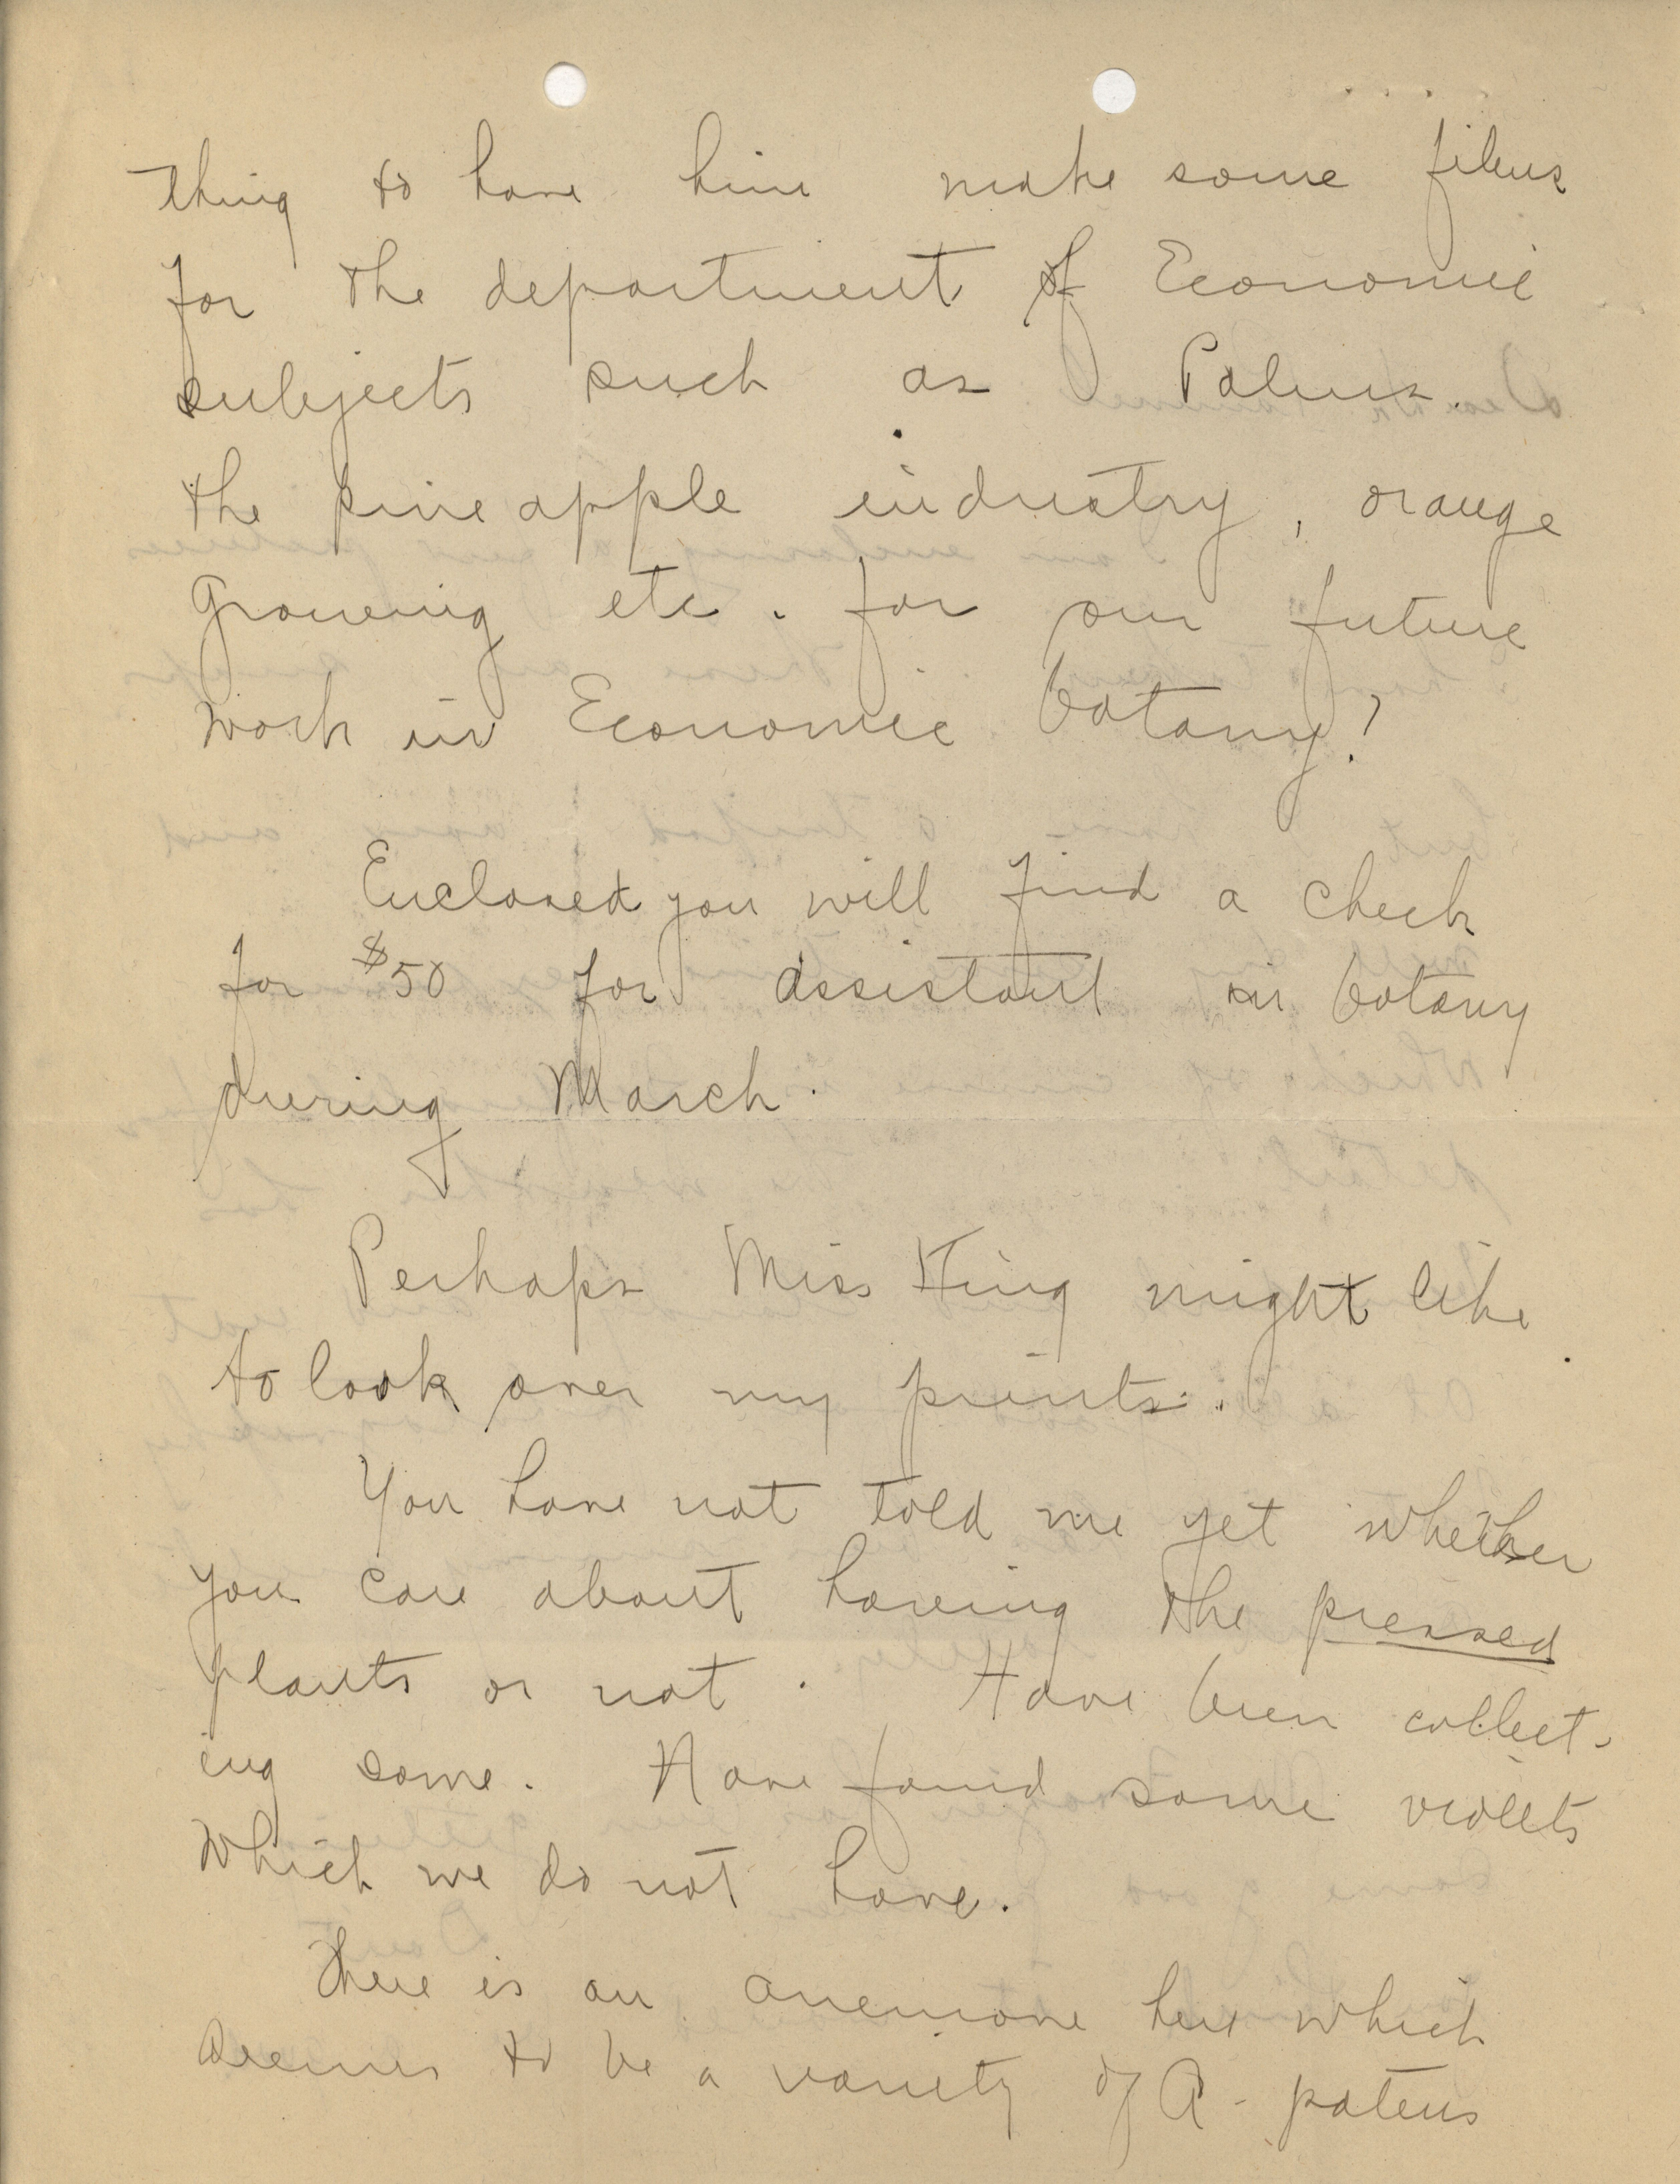 thing to have him make some films
for the department of Economic
subjects such as Palms.
the pineapple industry, orange
growing etc. for our future
work in Economic botany?
Enclosed you will find a check
for $50 for assistant in botany
during March.
Perhaps Miss King might like
to look over my prints.
You have not told me yet whether
you care about having the pressed
plants or not. Have been collect-
ing some. Have found some violets
which we do not have.
There is an anemone here which
seems to be a variety of A. patens